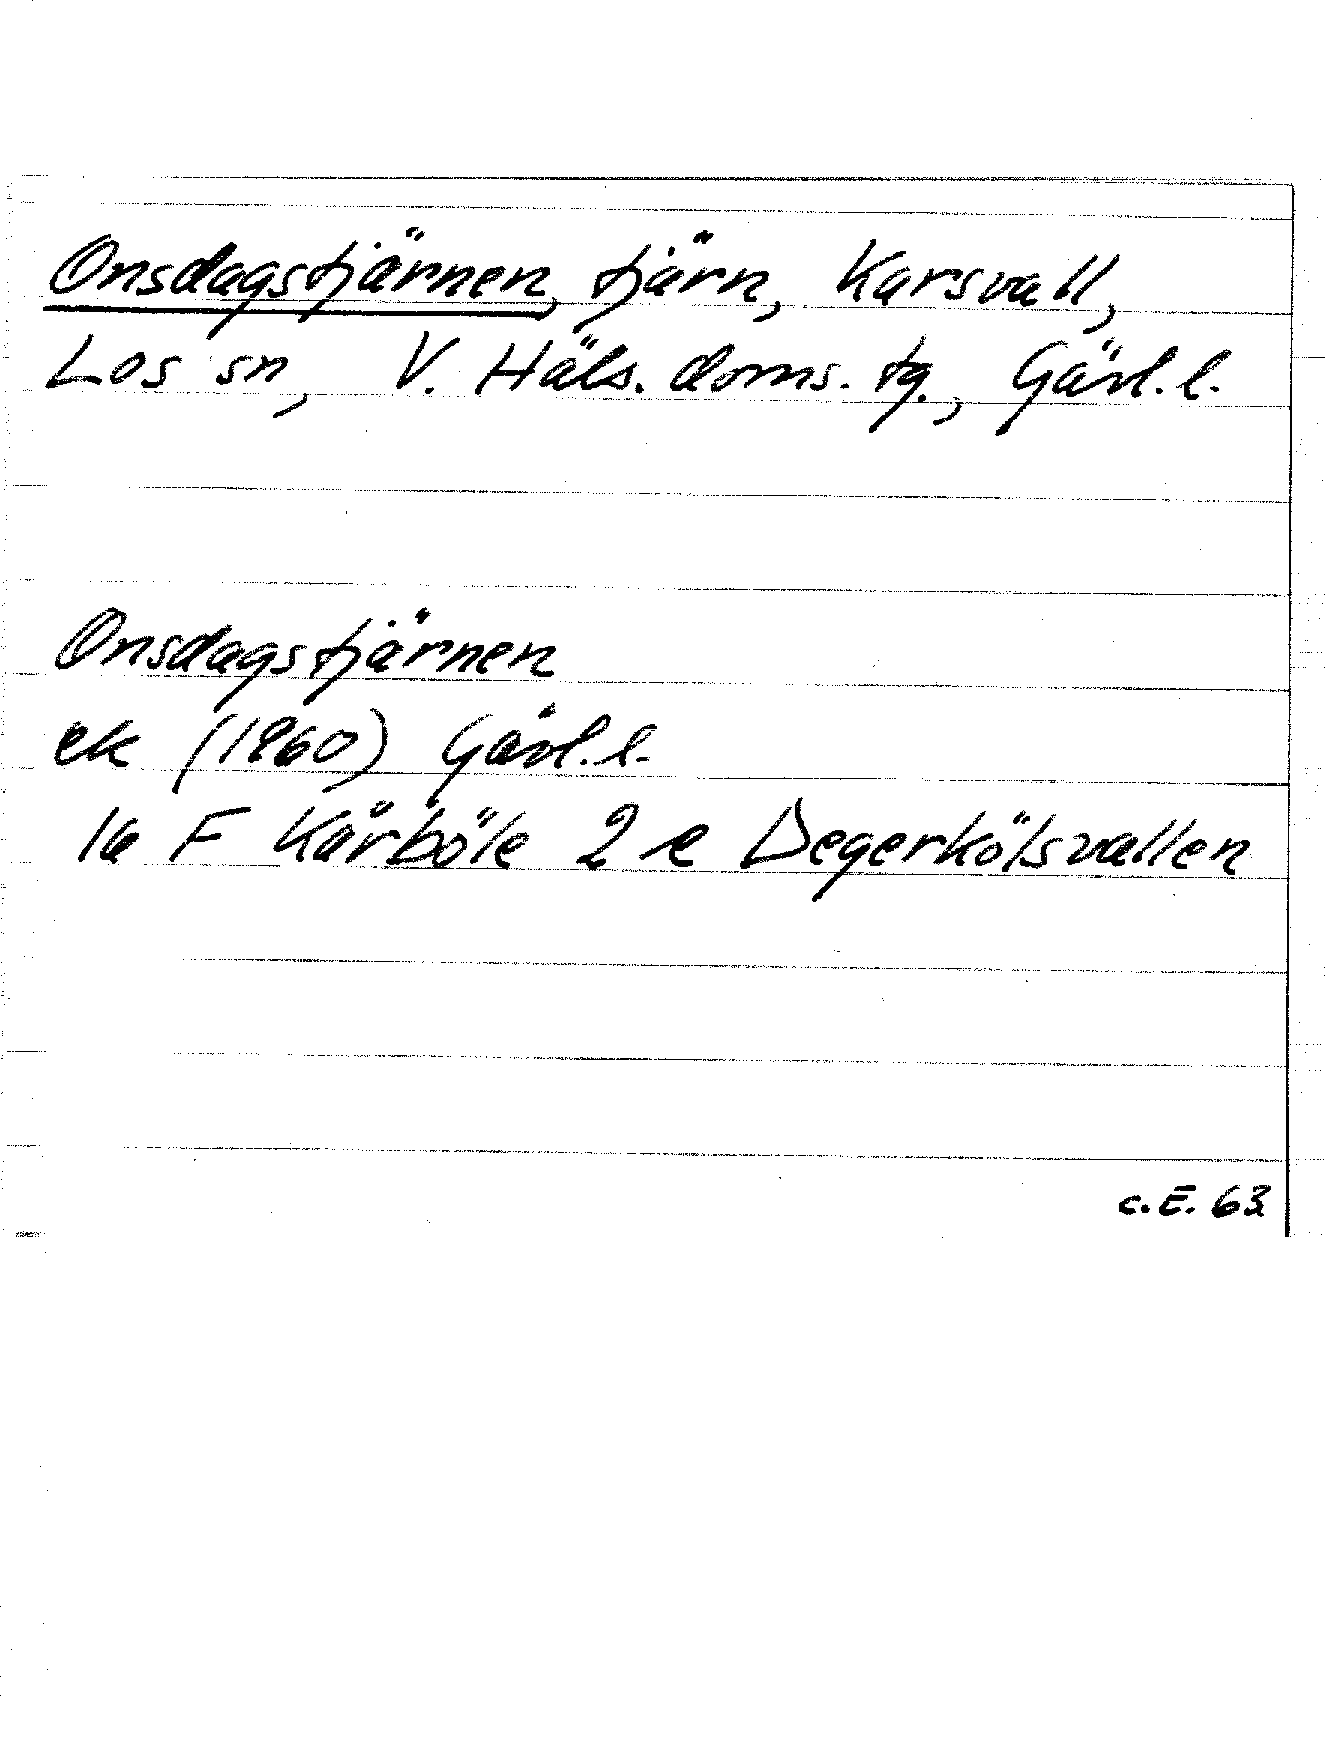 Onsdagstjärnen, tjärn, Karsvall,
Los sn, V. Häls. doms. tg., Gävl. l.
Onsdagstjärnen
ek (1960) Gävl. l.
16 F Kårböle 2 e Degerkölsvallen
C.E. 63